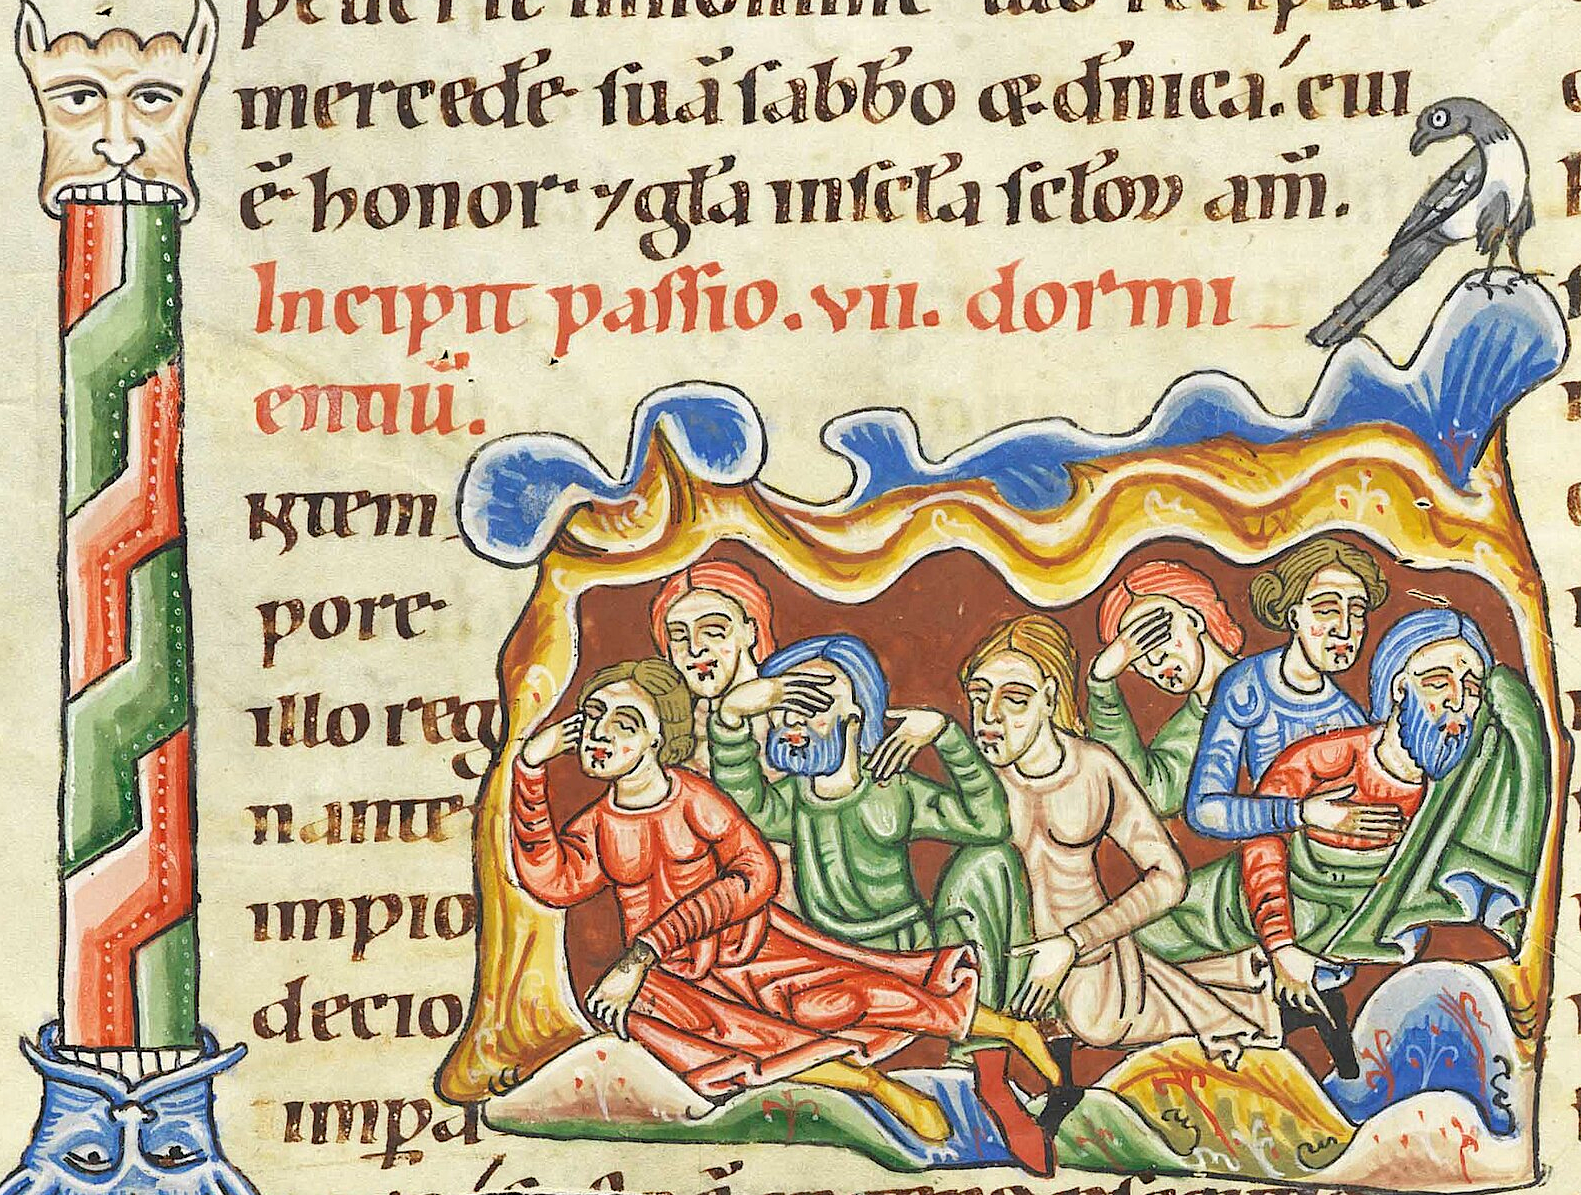 mercedē suā sabbo & dn̄ica. cui
ē honor ⁊ gl̄a in scl̄a scl̄oꝝ am̄.
Incipit passio. vii. dormi
entiū.
tem
pore
illo reg
nante
impio
decio
impa